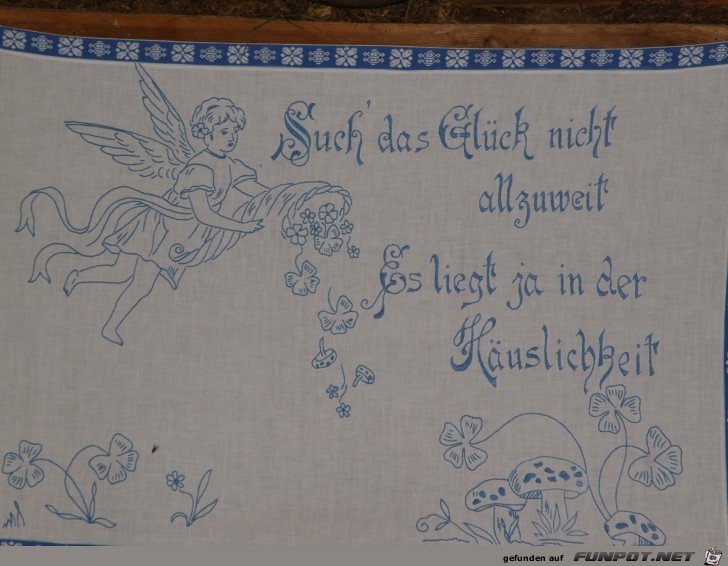 Such' das Glück nicht
allzuweit
Es liegt ja in der
Häuslichkeit
gefunden auf FUNPOT.NET